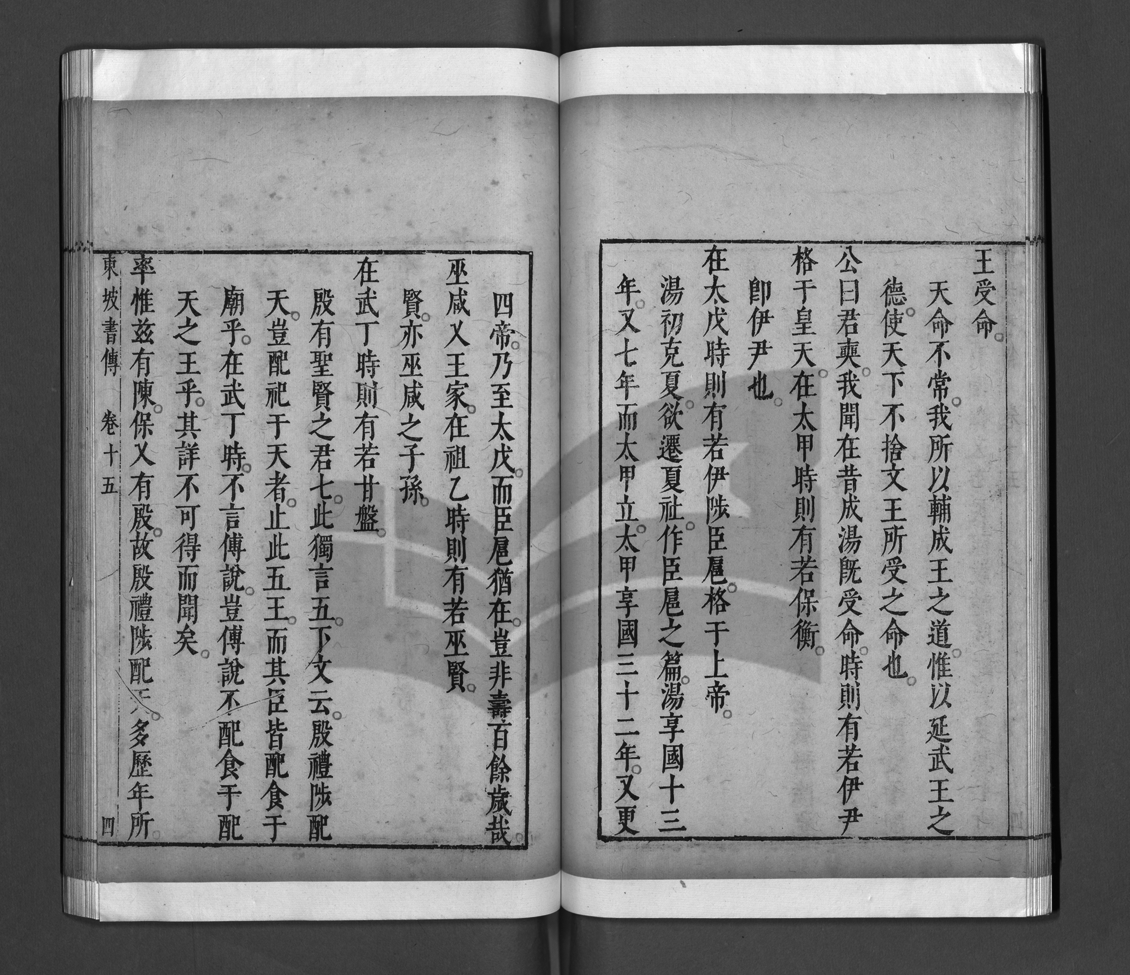 王受命。
天命不常。我所以輔成王之道。惟以延武王之
德。使天下不捨文王所受之命也。
公曰君奭。我聞在昔成湯旣受命。時則有若伊尹
格于皇天。在太甲時則有若保衡。
卽伊尹也。
在太戊時則有若伊陟臣扈。格于上帝。
湯初克夏。欲遷夏社。作臣扈之篇。湯享國十三
年。又七年而太甲立。太甲享國三十二年。又更
四帝。乃至太戊。而臣扈猶在。豈非壽百餘歲哉。
巫咸乂王家。在祖乙時則有若巫賢。
賢。亦巫咸之子孫。
在武丁時則有若甘盤。
殷有聖賢之君七。此獨言五。下文云。殷禮陟配
天。豈配祀于天者。止此五王。而其臣皆配食于
廟乎。在武丁時。不言傅說。豈傅說不配食于配
天之王乎。其詳不可得而聞矣。
率惟茲有陳。保乂有殷。故殷禮陟配天。多歷年所。
東坡書傳 卷十五 四